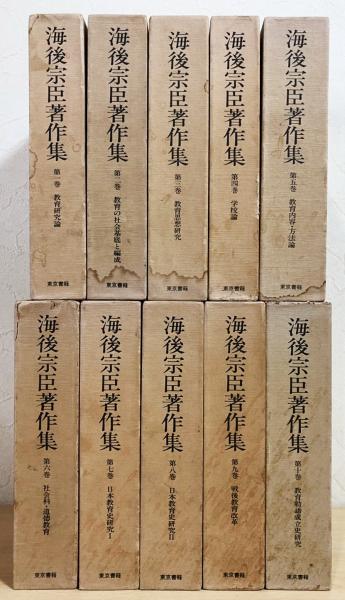 海後宗臣著作集
第一巻 教育研究論
東京書籍
海後宗臣著作集
第二巻 教育の社会基底と編成
東京書籍
海後宗臣著作集
第三巻 教育思想研究
東京書籍
海後宗臣著作集
第四巻 学校論
東京書籍
海後宗臣著作集
第五巻 教育内容・方法論
東京書籍
海後宗臣著作集
第六巻 社会科・道徳教育
東京書籍
海後宗臣著作集
第七巻 日本教育史研究Ⅰ
東京書籍
海後宗臣著作集
第八巻 日本教育史研究Ⅱ
東京書籍
海後宗臣著作集
第九巻 戦後教育改革
東京書籍
海後宗臣著作集
第十巻 教育勅語成立史研究
東京書籍